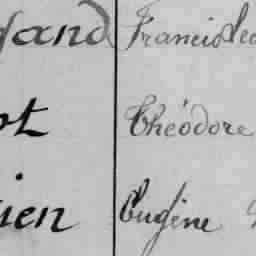 sand Francisle
ot Théodore
ien Eugène